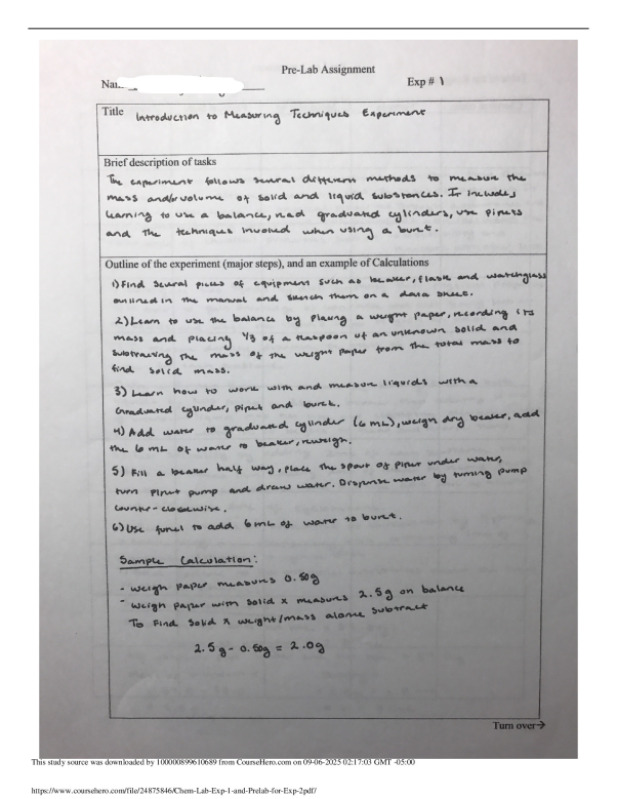 Pre-Lab Assignment
Exp # 1
Title Introduction to Measuring Techniques Experiment
Brief description of tasks
The experiment follows several different methods to measure the
mass and/or volume of solid and liquid substances. It includes
learning to use a balance, read graduated cylinders, use pipets
and the techniques involved when using a buret.
Outline of the experiment (major steps), and an example of Calculations
1) Find several pieces of equipment such as beaker, flask and watchglass
outlined in the manual and sketch them on a data sheet.
2) Learn to use the balance by placing a weight paper, recording its
mass and placing 1/3 of a teaspoon of an unknown solid and
subtracting the mass of the weight paper from the total mass to
find solid mass.
3) Learn how to work with and measure liquids with a
graduated cylinder, pipet and buret.
4) Add water to graduated cylinder (6 mL), weigh dry beaker, add
the 6 mL of water to beaker, reweigh.
5) Fill a beaker half way, place the spout of pipet under water,
turn pipet pump and draw water. Dispense water by turning pump
counter-clockwise.
6) Use funel to add 6mL of water to buret.
Sample Calculation:
- weigh paper measures 0.50g
- weigh paper with solid x measures 2.5g on balance
To find solid x weight/mass alone subtract
2.5g - 0.50g = 2.0g
Turn over→
This study source was downloaded by 100000899610689 from CourseHero.com on 09-06-2025 02:17:03 GMT -05:00
https://www.coursehero.com/file/24875846/Chem-Lab-Exp-1-and-Prelab-for-Exp-2pdf/